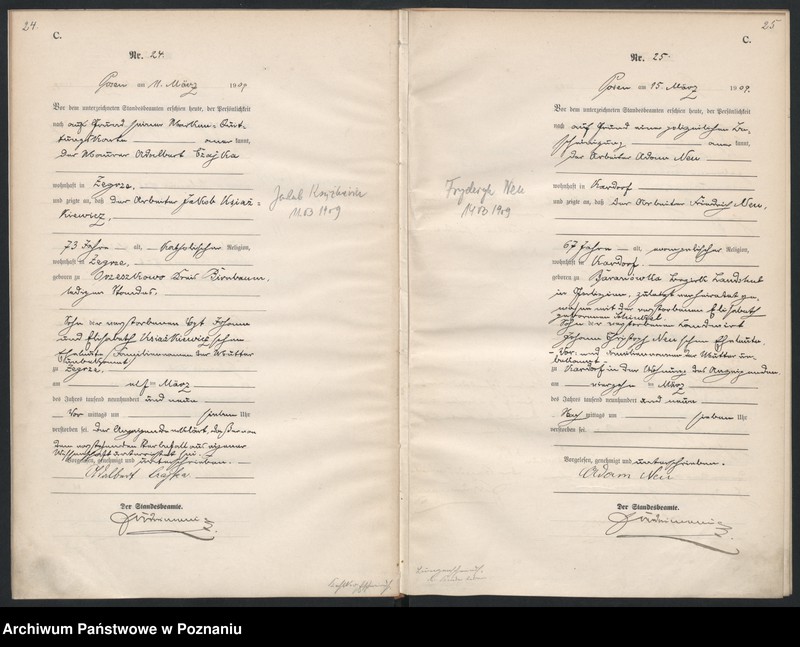 24.
C.
Nr. 24.
Posen am 11. März 1909.
Vor dem unterzeichneten Standesbeamten erschien heute, der Persönlichkeit
nach auf Grund seiner Marken-Quit-
tungskarte anerkannt,
der Maurer Adalbert
wohnhaft in Zegrze,
und zeigte an, daß der Arbeiter Jakob Ksiaz-
kiewicz,
73 Jahre alt, katholischer Religion,
wohnhaft in Zegrze,
geboren zu Orzeszkowo Kreis Birnbaum,
ledigen Standes,
Sohn der verstorbenen Vogt Johann
und Elisabeth Ksiazkiewicz'schen
Eheleute (Familienname der Mutter
unbekannt)
zu Zegrze,
am elften März
des Jahres tausend neunhundert und neun
Vor mittags um sieben Uhr
verstorben sei. Der Anzeigende erklärt, daß er von
dem vorstehenden Sterbefall aus eigener
Wissenschaft unterrichtet sei.
Vorgelesen, genehmigt und unterschrieben.
Der Standesbeamte.
Jakub
11 03 1909
25
C.
Nr. 25
Posen am 15. März 1909.
Vor dem unterzeichneten Standesbeamten erschien heute, der Persönlichkeit
nach auf Grund einer polizeilichen Be-
scheinigung anerkannt,
der Arbeiter Adam Neu
wohnhaft in Kardorf
und zeigte an, daß der Arbeiter Friedrich Neu,
67 Jahre alt, evangelischer Religion,
wohnhaft in Kardorf
geboren zu Baranowka Bezirk Landskut
in Galizien, zuletzt verheiratet ge-
wesen mit der verstorbenen Elisabeth
geborenen
Sohn der verstorbenen Landwirt
Johann Christoph Neu'schen Eheleute,
Vor- und Familienname der Mutter un-
bekannt
zu Kardorf in der Wohnung des Anzeigenden
am vierzehn ten März
des Jahres tausend neunhundert und neun
Nach mittags um sieben Uhr
verstorben sei.
Vorgelesen, genehmigt und unterschrieben.
Adam Neu
Der Standesbeamte.
Fryderyk Neu
14 03 1909
Archiwum Państwowe w Poznaniu